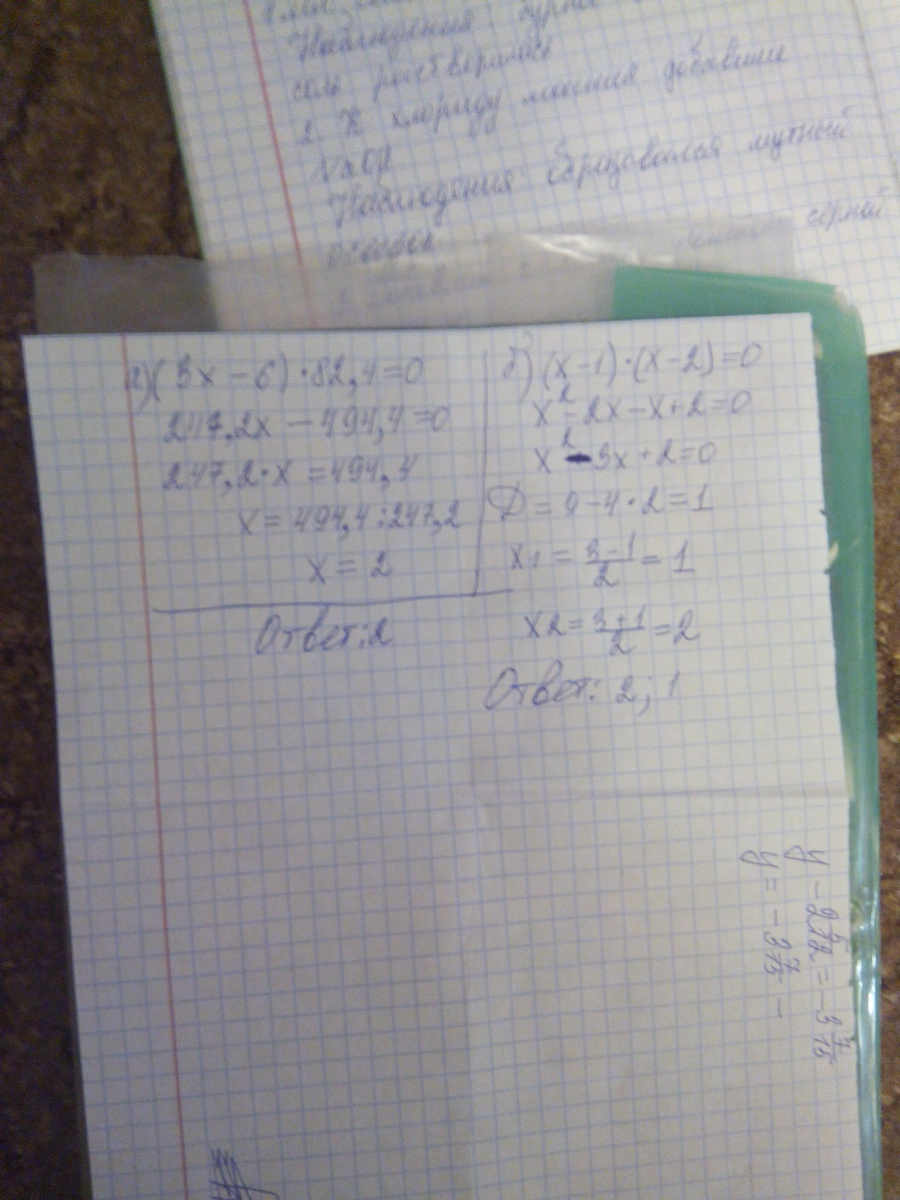 Наблюдения бурно
соль растворилась
2. К хлориду магния добавили
NaOH
Наблюдения образовался мутный
осадок
серной
г)(3x-6)·82,4=0
247.2x-494,4=0
247,2·x=494,4
x=494,4:247,2
x=2
Ответ:2
б)(x-1)·(x-2)=0
x²-2x-x+2=0
x²-3x+2=0
D=9-4·2=1
x1=3-1/2=1
x2=3+1/2=2
Ответ: 2; 1
y=-3 7/15-